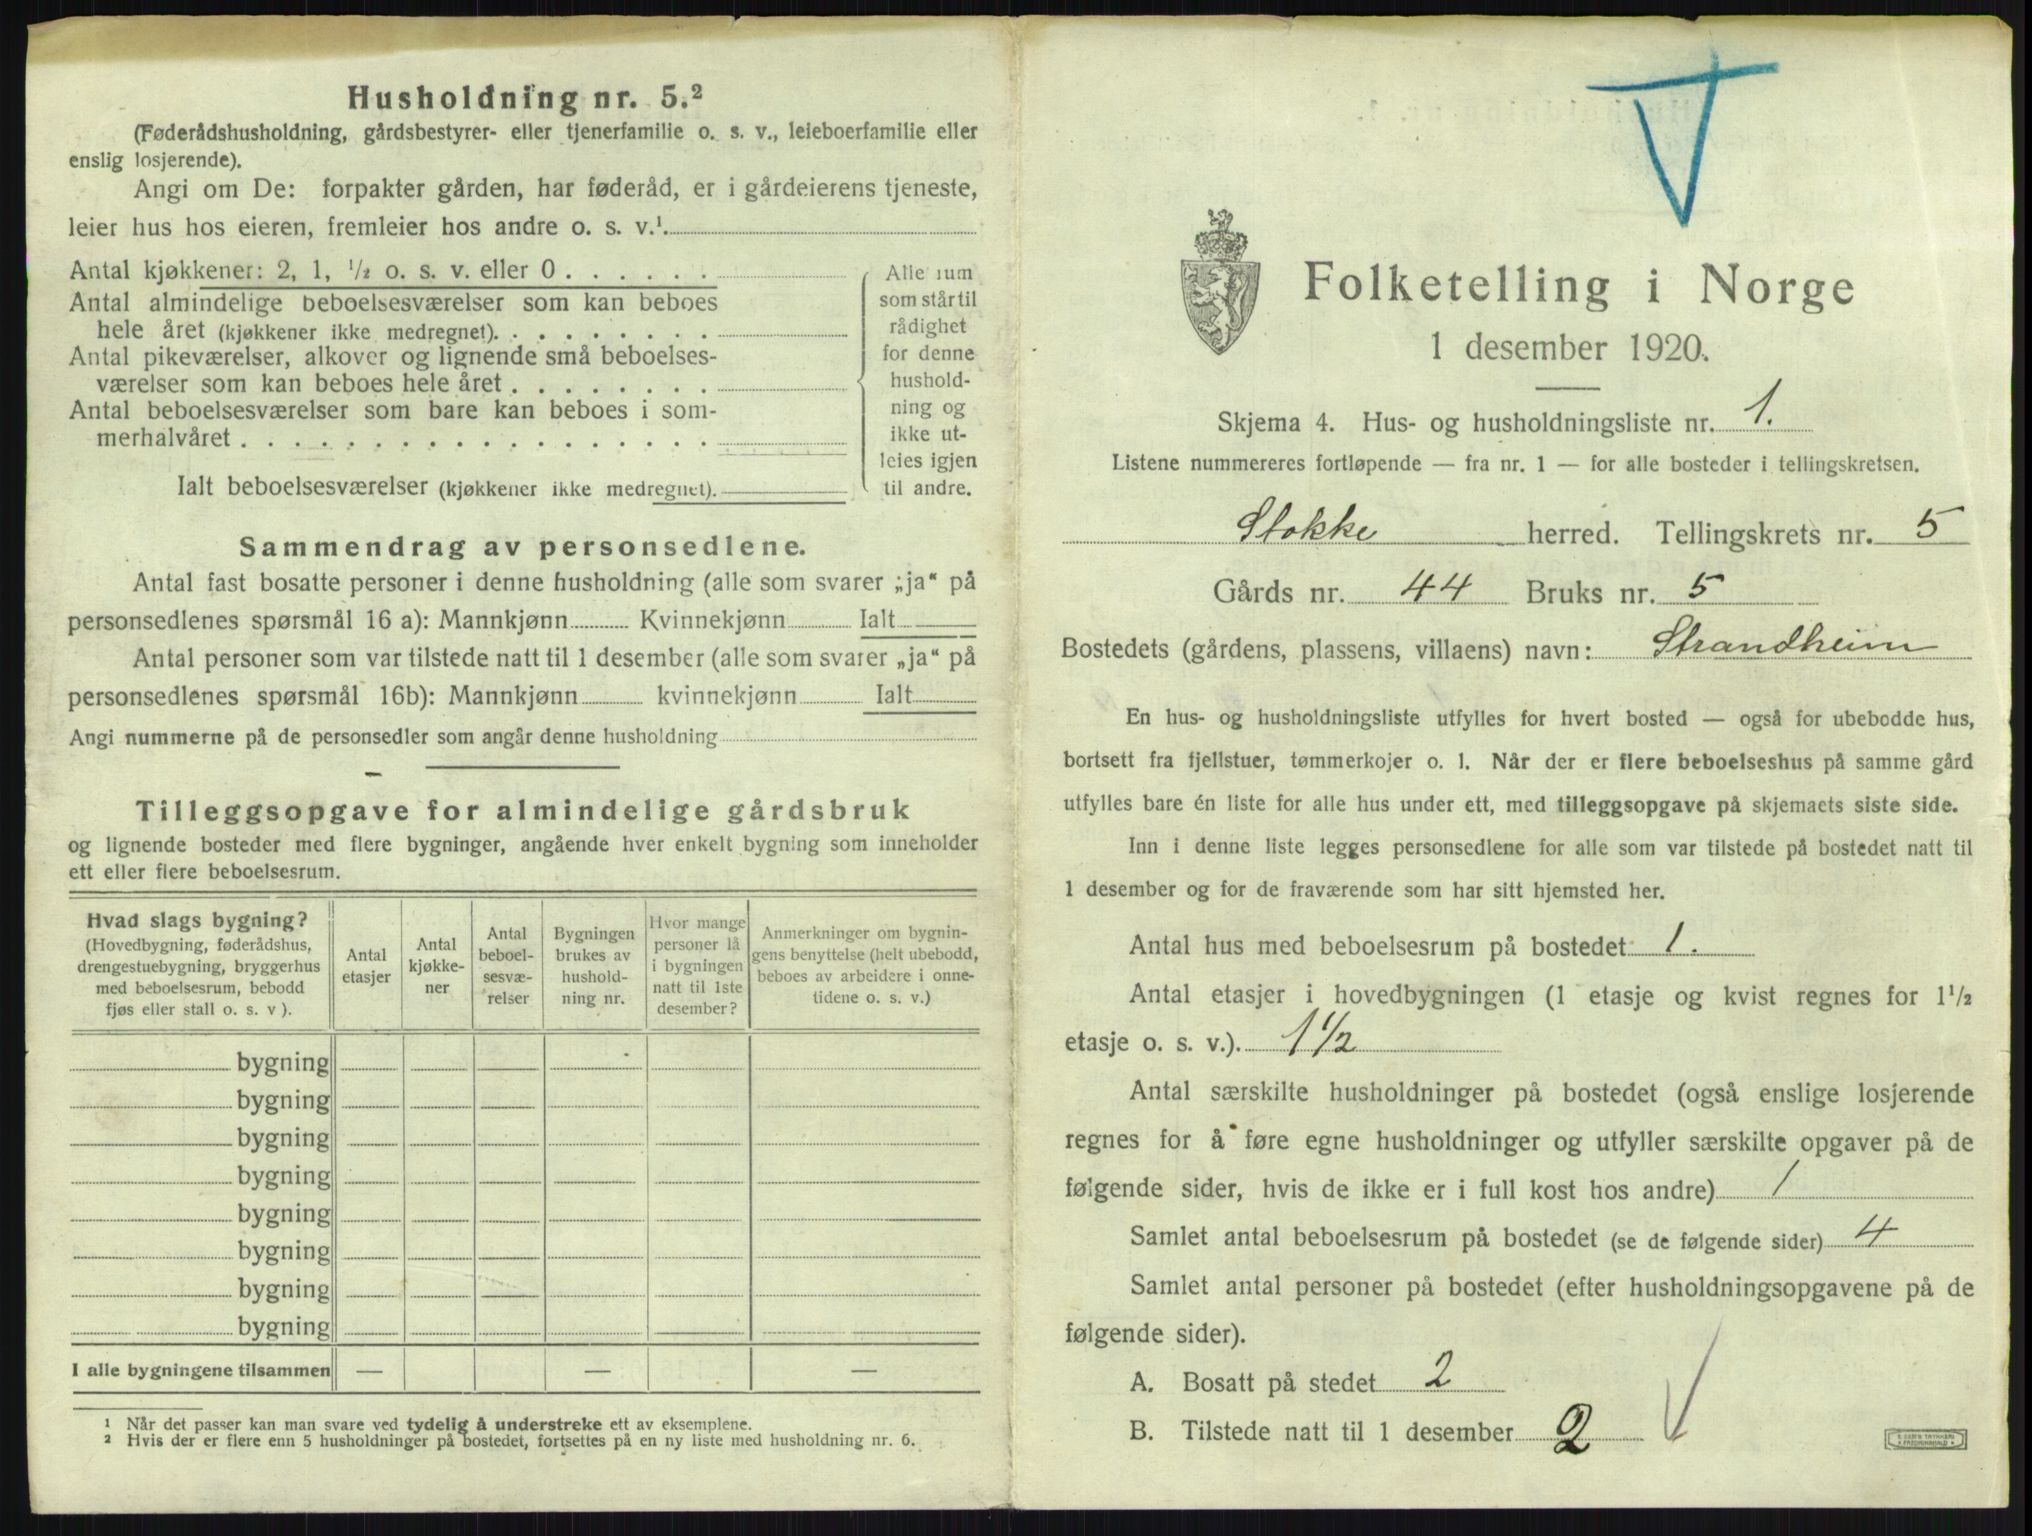 Husholdning nr. 5.²
(Føderådshusholdning, gårdsbestyrer- eller tjenerfamilie o. s. v., leieboerfamilie eller
enslig losjerende).
Angi om De: forpakter gården, har føderåd, er i gårdeierens tjeneste,
leier hus hos eieren, fremleier hos andre o. s. v.¹.
Antal kjøkkener: 2, 1, ½ o. s. v. eller 0 . . . . . .
Antal almindelige beboelsesværelser som kan beboes
hele året (kjøkkener ikke medregnet). . . . . . . . .
Antal pikeværelser, alkover og lignende små beboelses-
værelser som kan beboes hele året . . . . . . . .
Antal beboelsesværelser som bare kan beboes i som-
merhalvåret . . . . . . . . . . . . . . . . . .
Ialt beboelsesværelser (kjøkkener ikke medregnet).
Alle rum
som står til
rådighet
for denne
hushold-
ning og
ikke ut-
leies igjen
til andre.
Sammendrag av personsedlene.
Antal fast bosatte personer i denne husholdning (alle som svarer „ja“ på
personsedlenes spørsmål 16 a): Mannkjønn Kvinnekjønn Ialt
Antal personer som var tilstede natt til 1 desember (alle som svarer „ja“ på
personsedlenes spørsmål 16b): Mannkjønn kvinnekjønn Ialt
Angi nummerne på de personsedler som angår denne husholdning
Tilleggsopgave for almindelige gårdsbruk
og lignende bosteder med flere bygninger, angående hver enkelt bygning som inneholder
ett eller flere beboelsesrum.
Hvad slags bygning?
(Hovedbygning, føderådshus,
drengestuebygning, bryggerhus
med beboelsesrum, bebodd
fjøs eller stall o. s. v ).
Antal
etasjer
Antal
kjøkke-
ner
Antal
beboel-
sesvæ-
relser
Bygningen
brukes av
hushold-
ning nr.
Hvor mange
personer lå
i bygningen
natt til 1ste
desember?
Anmerkninger om bygnin-
gens benyttelse (helt ubebodd,
beboes av arbeidere i onne-
tidene o. s. v.)
bygning
bygning
bygning
bygning
bygning
bygning
bygning
bygning
I alle bygningene tilsammen — — —
¹ Når det passer kan man svare ved tydelig å understreke ett av eksemplene.
² Hvis der er flere enn 5 husholdninger på bostedet, fortsettes på en ny liste med husholdning nr. 6.
Folketelling i Norge
1 desember 1920.
Skjema 4. Hus- og husholdningsliste nr. 1.
Listene nummereres fortløpende — fra nr. 1 — for alle bosteder i tellingskretsen.
Stokke herred. Tellingskrets nr. 5
Gårds nr. 44 Bruks nr. 5
Bostedets (gårdens, plassens, villaens) navn: Strandheim
En hus- og husholdningsliste utfylles for hvert bosted — også for ubebodde hus,
bortsett fra fjellstuer, tømmerkojer o. l. Når der er flere beboelseshus på samme gård
utfylles bare én liste for alle hus under ett, med tilleggsopgave på skjemaets siste side.
Inn i denne liste legges personsedlene for alle som var tilstede på bostedet natt til
1 desember og for de fraværende som har sitt hjemsted her.
Antal hus med beboelsesrum på bostedet 1.
Antal etasjer i hovedbygningen (1 etasje og kvist regnes for 1½
etasje o. s. v.). 1½
Antal særskilte husholdninger på bostedet (også enslige losjerende
regnes for å føre egne husholdninger og utfyller særskilte opgaver på de
følgende sider, hvis de ikke er i full kost hos andre) 1
Samlet antal beboelsesrum på bostedet (se de følgende sider) 4
Samlet antal personer på bostedet (efter husholdningsopgavene på de
følgende sider).
A. Bosatt på stedet 2
B. Tilstede natt til 1 desember 2